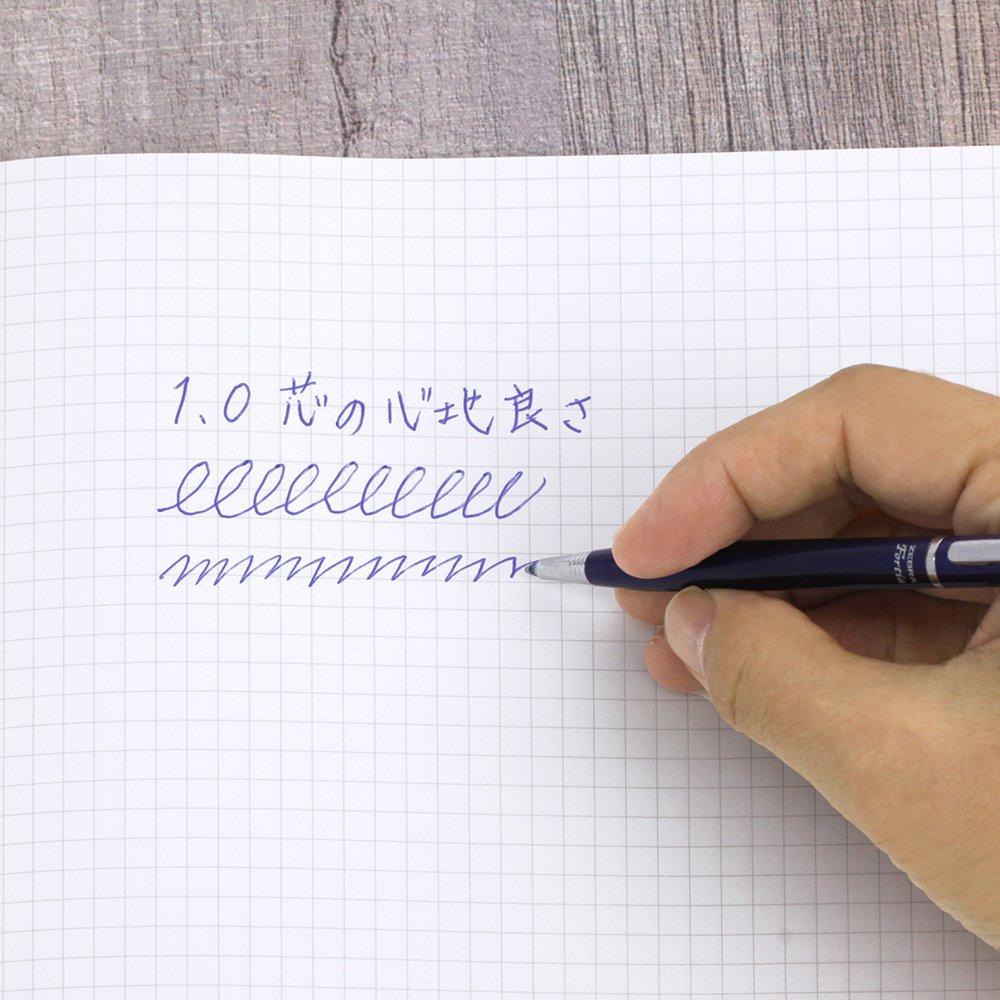 1.0 芯の心地良さ
ZEBRA